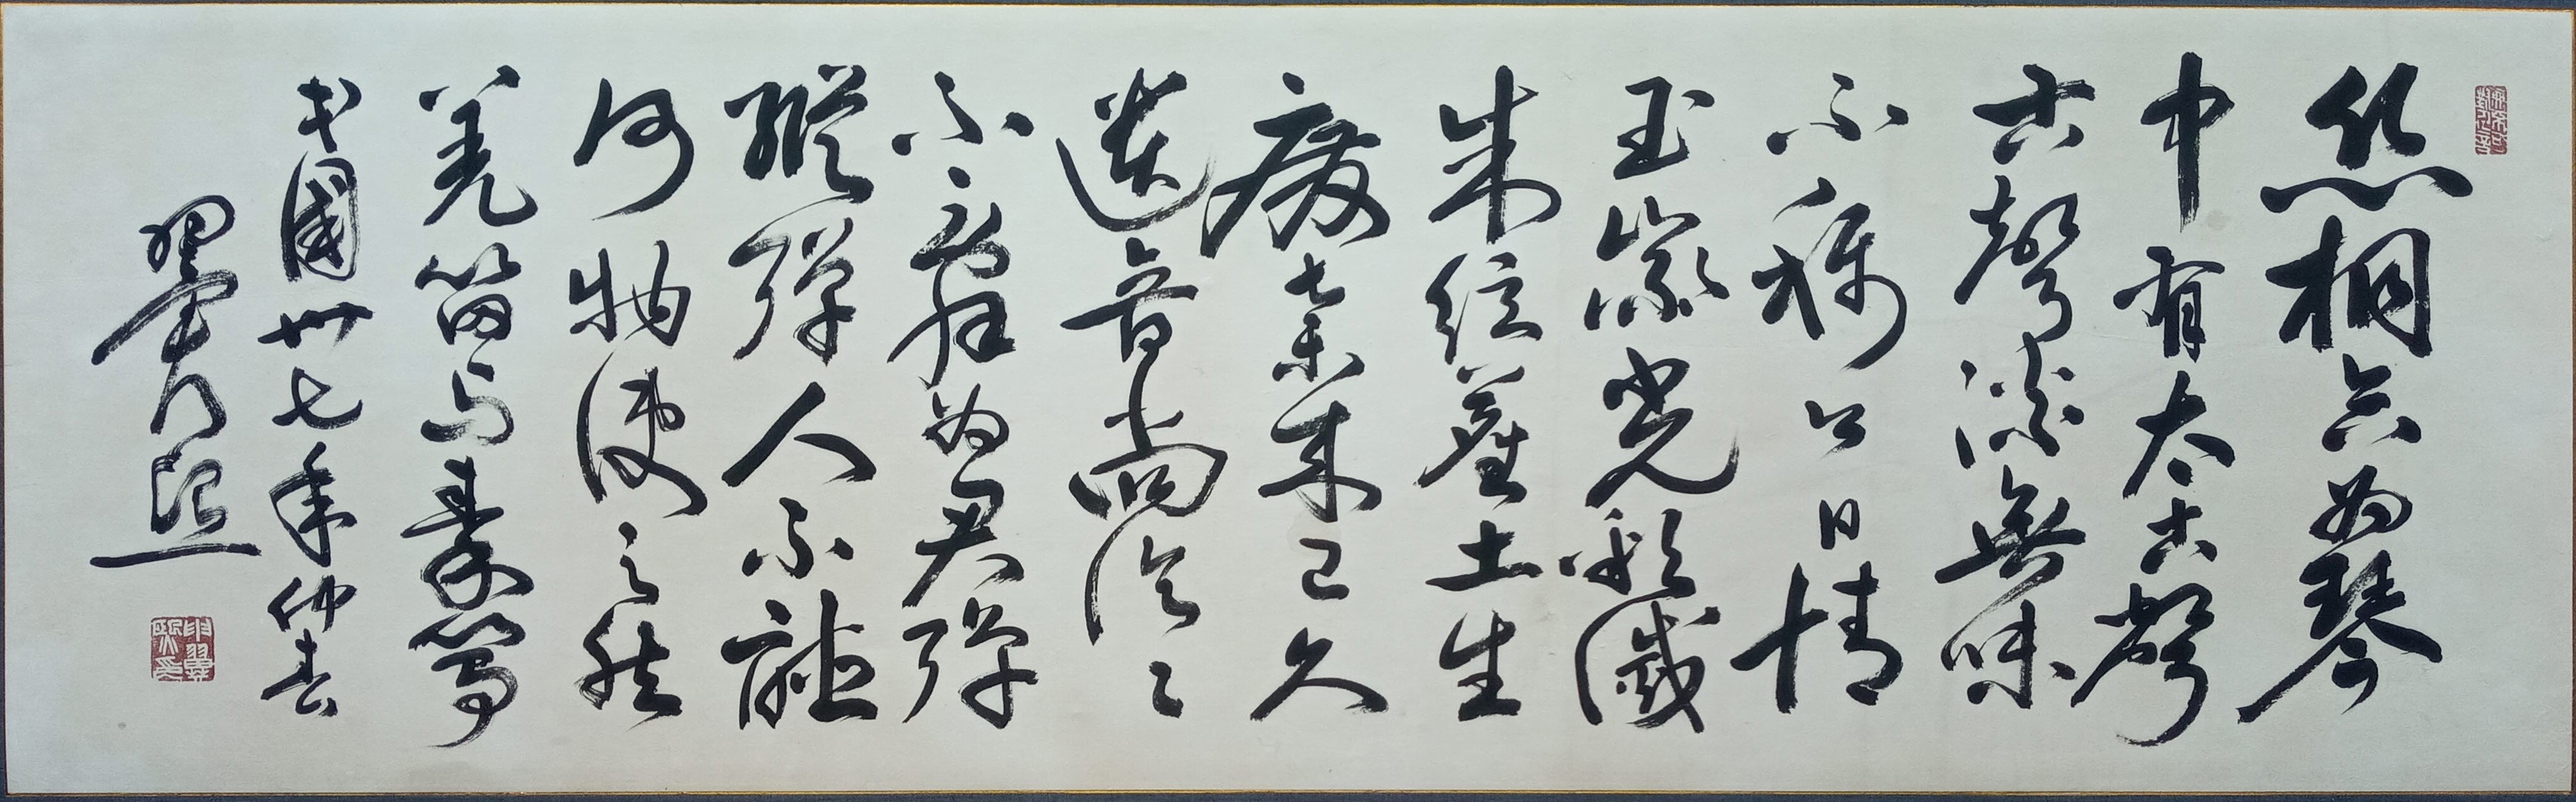 絲桐合為琴
中有太古聲
古聲澹無味
不稱今日情
玉徽光彩滅
朱絃塵土生
廢棄來已久
遺音尚泠々
不辭為君彈
縱彈人不聽
何物使之然
羌笛與秦箏
民國卅七年仲春
翼熙
申翼熙印